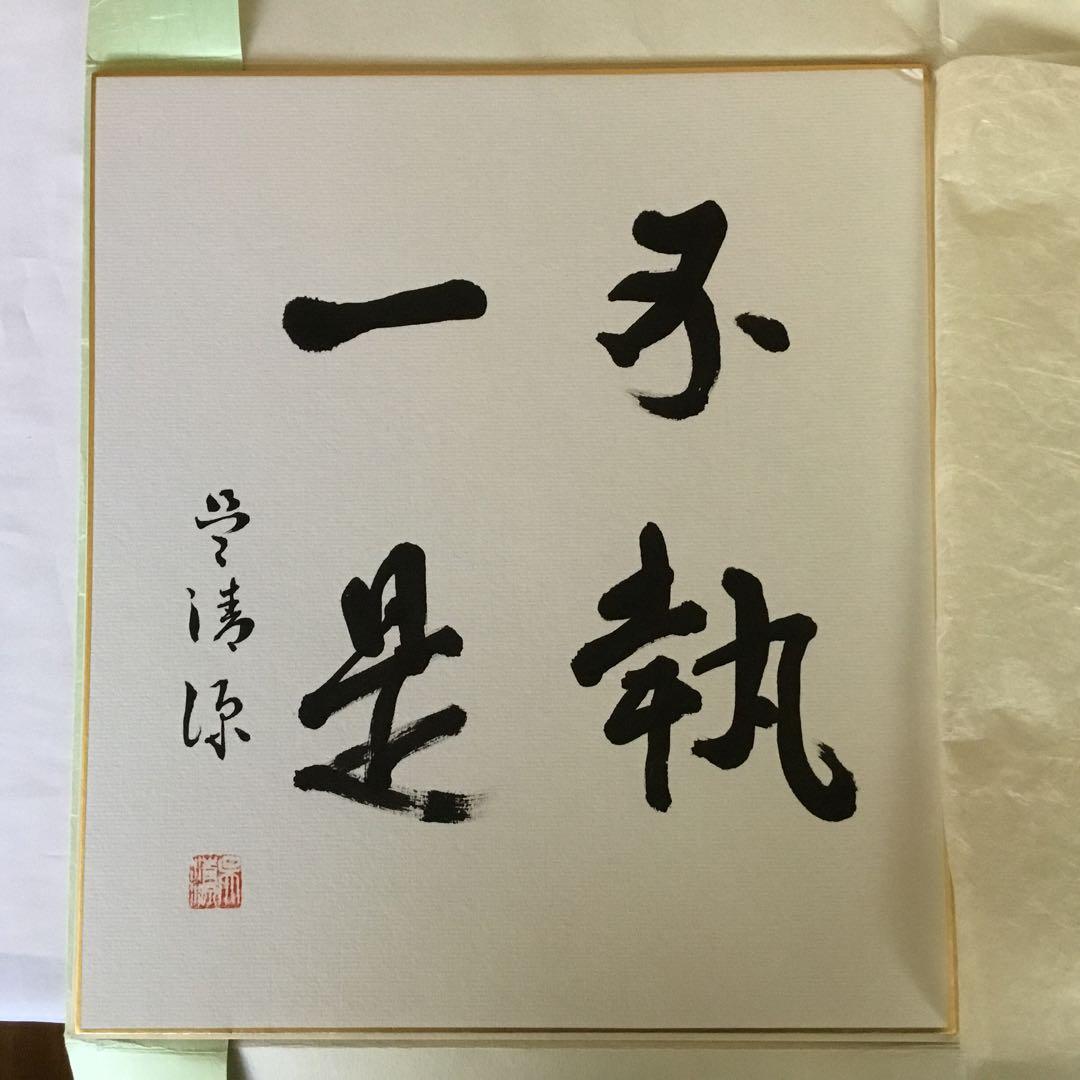 不執
一是
呉清源